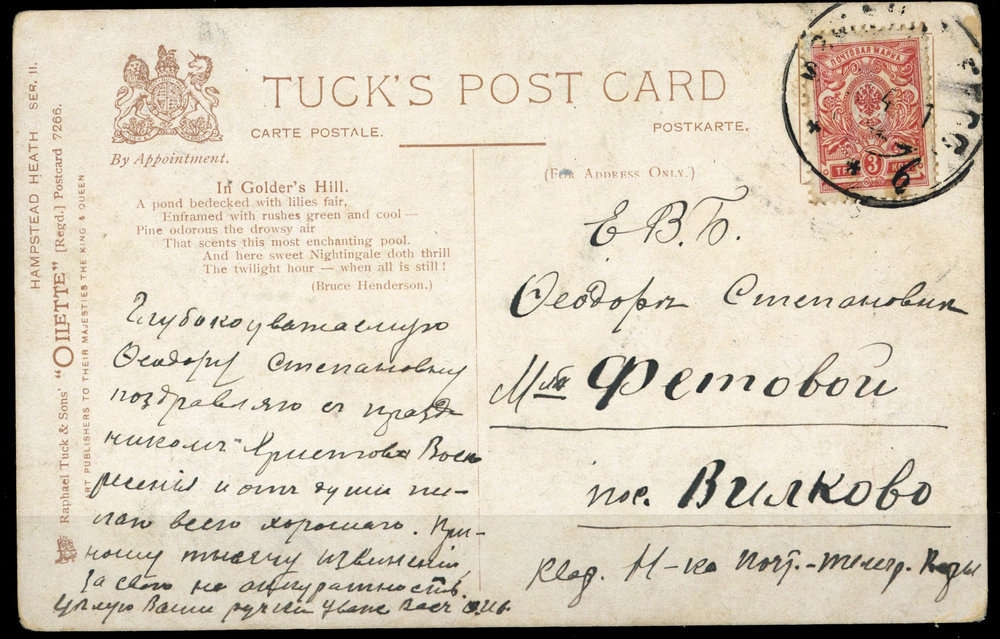 HAMPSTEAD HEATH SER. II.
Raphael Tuck & Sons' "OILETTE" [Regd.] Postcard 7266.
ART PUBLISHERS TO THEIR MAJESTIES THE KING & QUEEN
By Appointment.
TUCK'S POST CARD
CARTE POSTALE. POSTKARTE.
In Golder's Hill.
A pond bedecked with lilies fair,
Enframed with rushes green and cool—
Pine odorous the drowsy air
That scents this most enchanting pool.
And here sweet Nightingale doth thrill
The twilight hour — when all is still!
(Bruce Henderson.)
Глубокоуважаемую
Ѳеодору Степановну
поздравляю съ празд-
никомъ Христова Воск-
ресенія и отъ души же-
лаю всего хорошаго. При-
ношу тысячу извиненій
за свою не аккуратность.
Цѣлую Ваши ручки
(For Address Only.)
ПОЧТОВАЯ МАРКА
3
Е.В.Б.
Ѳеодоръ Степановнѣ
Фетовой
пос. Вилково
Почт.-телегр.